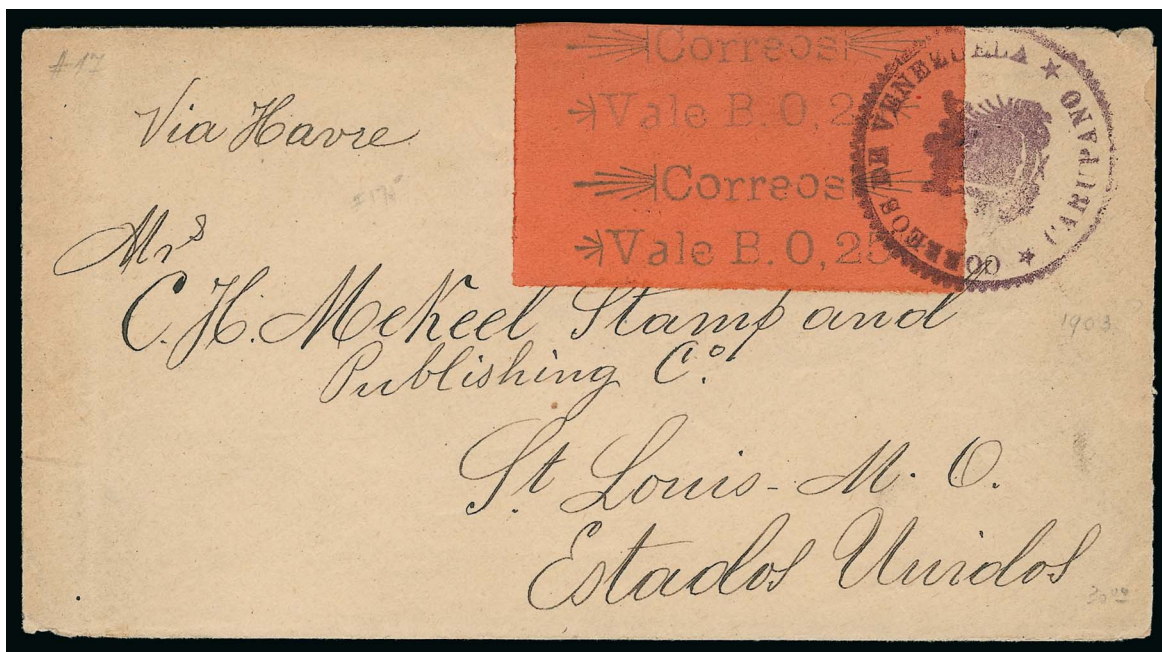 #17
Via Havre
Correos
Vale B. 0,25
Correos
Vale B. 0,25
CORREOS DE VENEZUELA ★ CARUPANO ★
Mrs
C. H. Mekeel Stamp and
Publishing Co.
1903
St Louis - M. O.
Estados Unidos